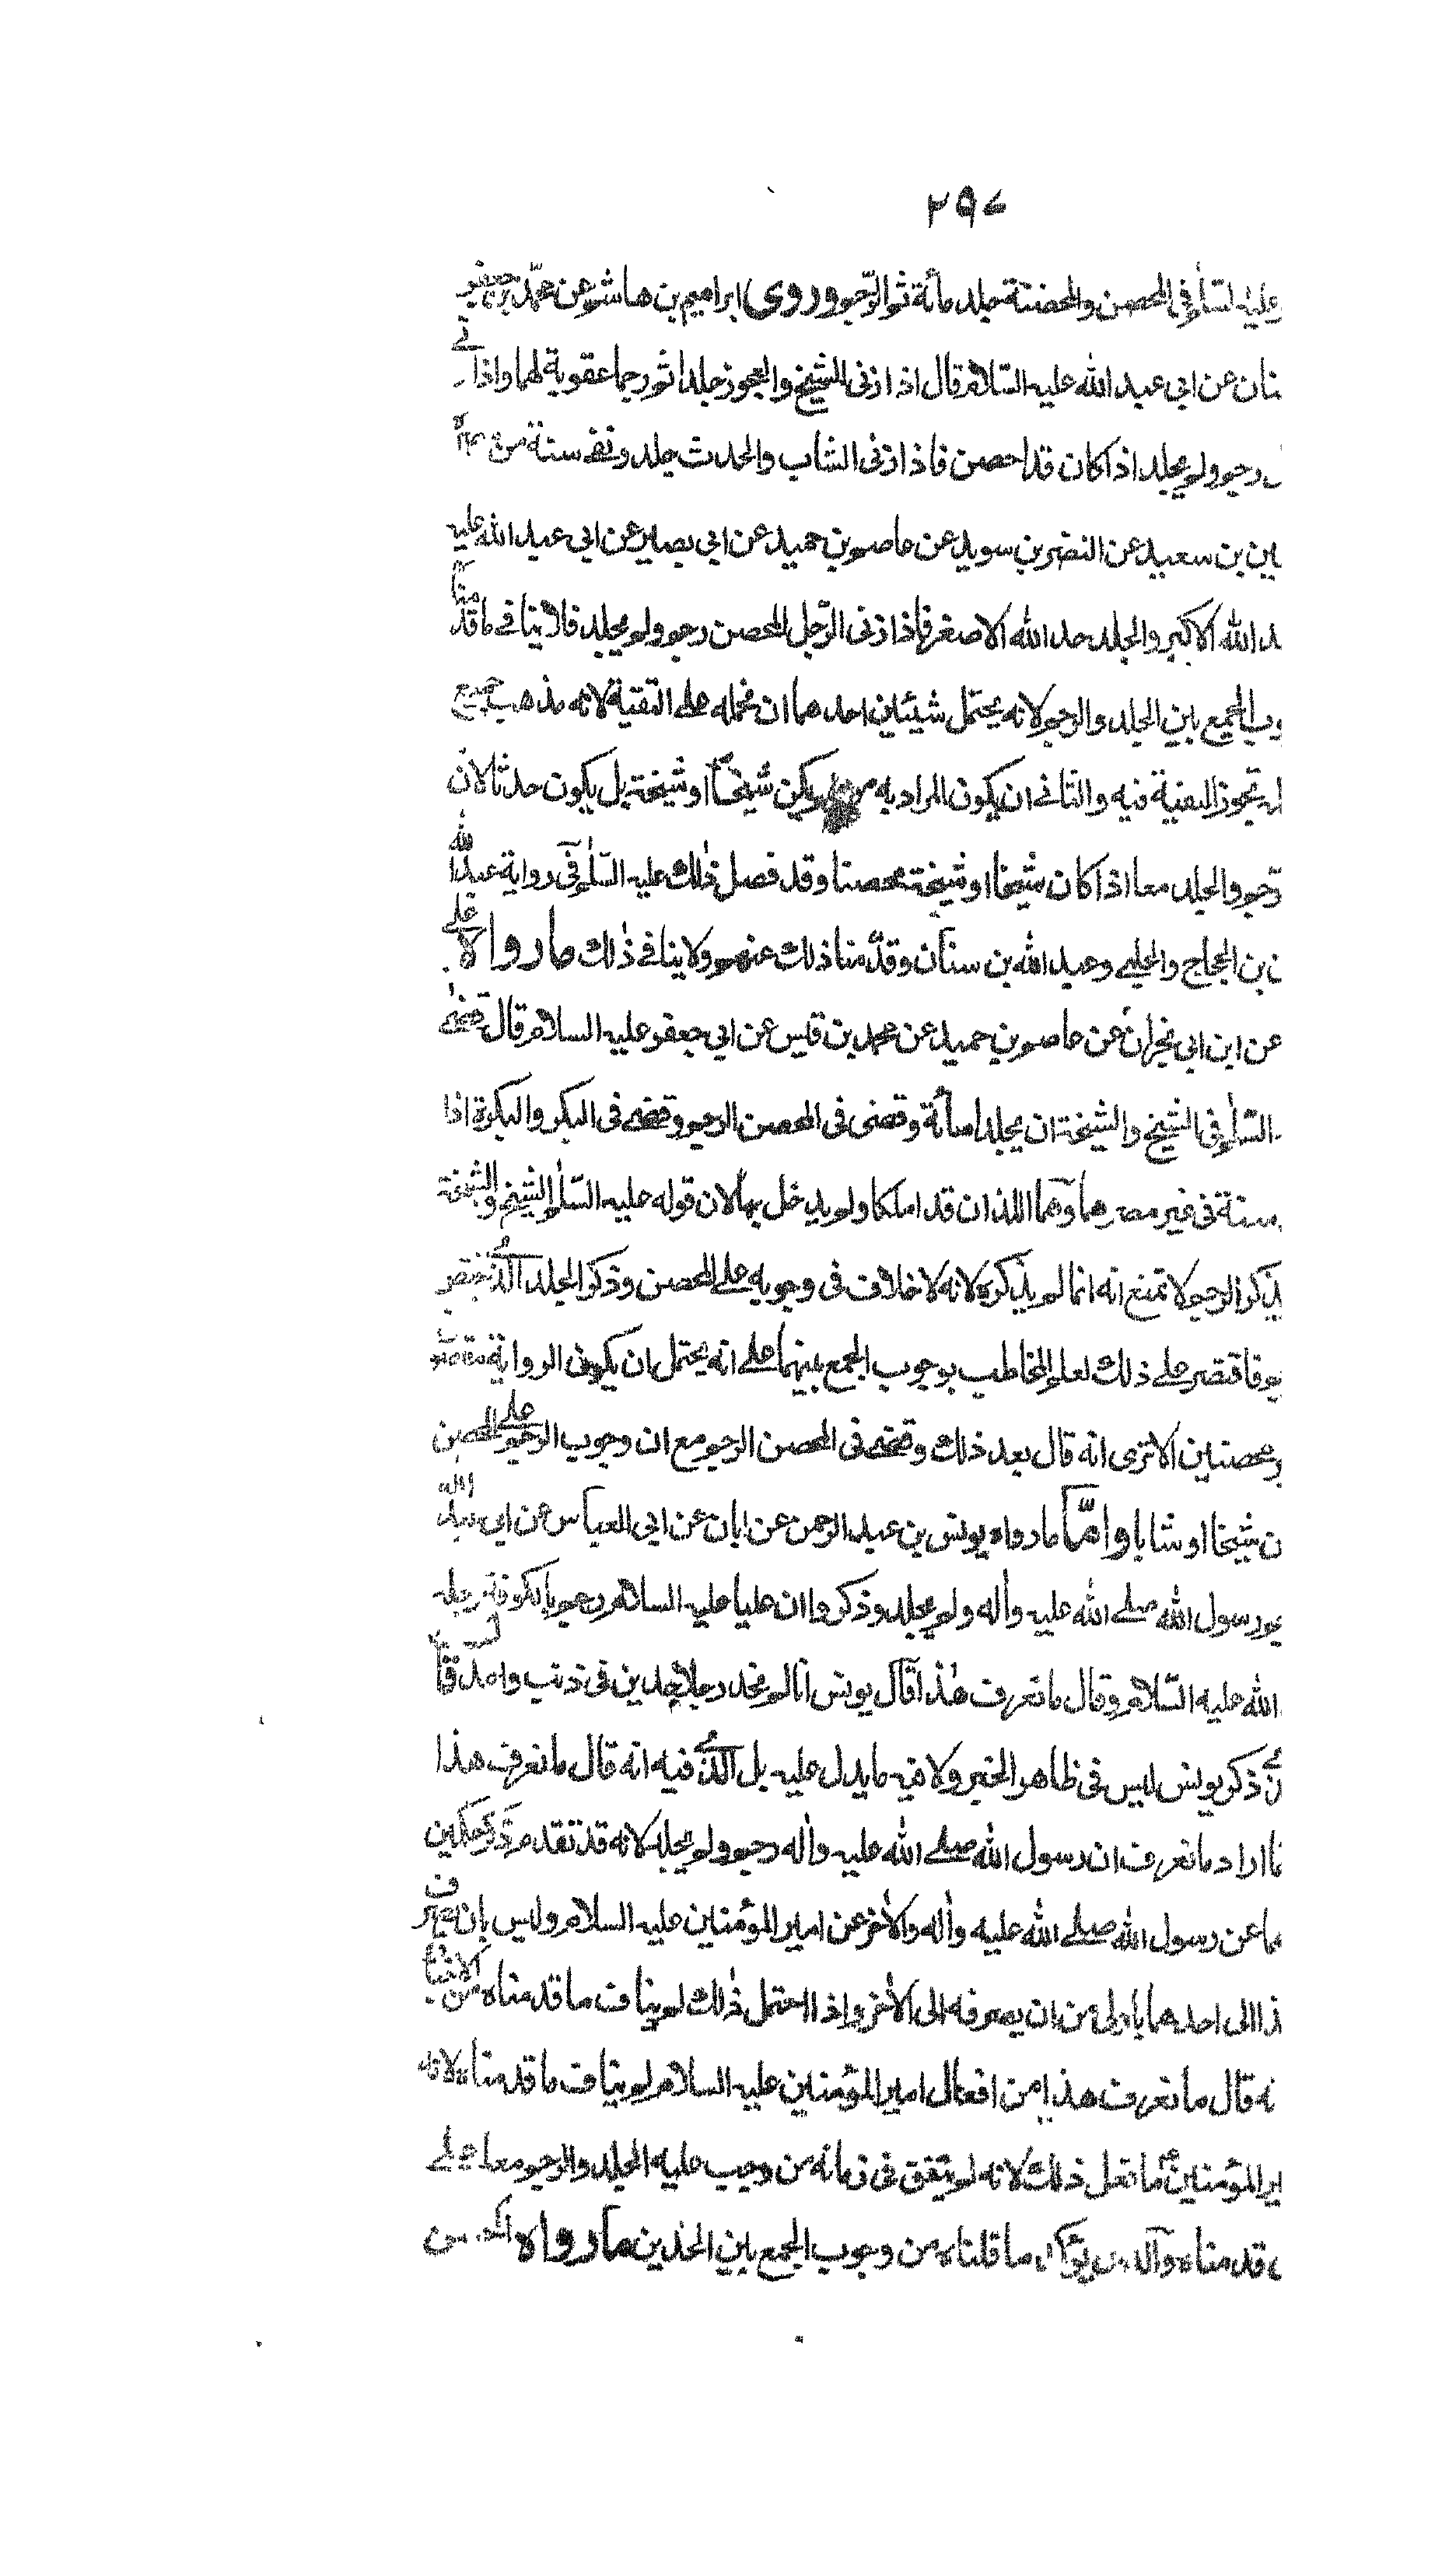 ٢٩٧
عليه السلٰم فى المحصن والمحصنة جلد مائة ثم الرّجم وروى ابراهيم بن هاشم عن محمّد بن جعفر
عن ابي عبد الله عليه السّلام قال اذا زنى الشيخ والعجوز جلدا ثم رجما عقوبة لهما واذا زنى
رجم ولم يجلد اذا كان قد احصن فاذا زنى الشاب والحدث جلد ونفى سنة من
بن سعيد عن النضر بن سويد عن عاصم بن حميد عن ابي بصير عن ابي عبد الله عليه
الله الاكبر والجلد حد الله الاصغر فاذا زنى الرّجل المحصن رجم ولم يجلد فلا ينافي ما قدّمنا
الجمع بين الجلد والرجم لانه يحتمل شيئين احدهما ان نحمله على التقية لانه مذهب جميع
تجوز التقية فيه والثاني ان يكون المراد به من يكن شيخًا او شيخة بل يكون حدثا لان
والجلد معا اذا كان شيخا او شيخة محصنا وقد فصل ذٰلك عليه السّلٰم فى رواية عبد الله
بن الحجاج والحلبي وعبد الله بن سنان وقدّمنا ذلك عنهم ولا ينافي ذٰلك ما رواه على
عن ابن ابي نجران عن عاصم بن حميد عن محمد بن قيس عن ابي جعفر عليه السلام قال قضى
السّلٰم فى الشيخ والشيخة ان يجلدا مائة وقضى فى المحصن الرجم وقضى فى البكر والبكرة اذا
سنة فى غير مصرهما وهما اللذان قد املكا ولم يدخل بها لان قوله عليه السّلٰم الشيخ والشيخة
يذكر الرجم لا تمنع انه انما لم يذكره لانه لا خلاف فى وجوبه على المحصن وذكر الجلد الّذي يختص
فاقتصر على ذلك لعلم المخاطب بوجوب الجمع بينهما على انه يحتمل ان يكون الرواية مقصورة
محصنين الا ترى انه قال بعد ذلك وقضى فى المحصن الرجم مع ان وجوب الرجم على المحصن
شيخا او شابا وامّا ما رواه يونس بن عبد الرحمن عن ابان عن ابي العباس عن ابي عبد الله
رسول الله صلى الله عليه واٰله ولم يجلد وذكروا ان عليا عليه السلام رجم بالكوفة وجلد
الله عليه السّلام وقال ما نعرف هٰذا قال يونس انا لم نجد رجلا حدين فى ذنب واحد
ذكر يونس ليس فى ظاهر الخبر ولا فيه ما يدل عليه بل الّذي فيه انه قال ما نعرف هذا
اراد ما نعرف ان رسول الله صلى الله عليه واٰله رجم ولم يجلد لانه قد تقدم ذكر حكمين
عن رسول الله صلى الله عليه واٰله والاٰخر عن امير المؤمنين عليه السلام وليس بان يصرف
الى احدهما باولى من ان يصرفه الى الاٰخر واذا احتمل ذٰلك لم يناف ما قدمناه من الاخبار
قال ما نعرف هذا من افعال امير المؤمنين عليه السلام لم يناف ما قدمناه لانه
المؤمنين ما نعل ذلك لانه لم يتفق فى زمانه من وجب عليه الجلد والرجم معا على
قدمناه والذي يؤكد ما قلناه من وجوب الجمع بين الحدين ما رواه الحسن